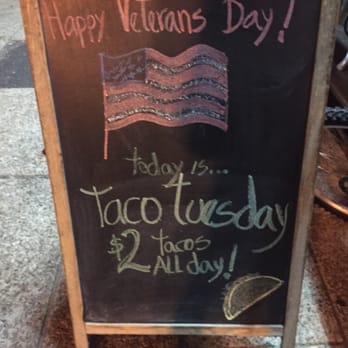 Happy Veterans Day!
today is...
Taco tuesday
$2 tacos
ALL day!